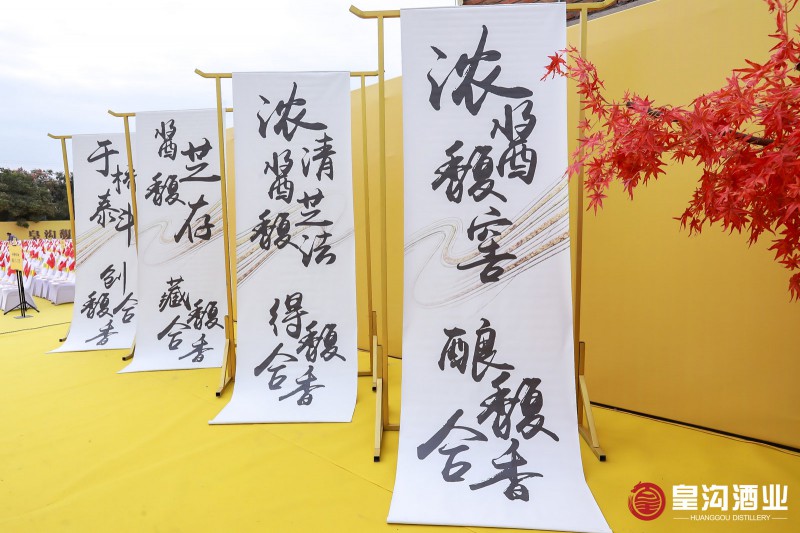 于桥泰斗
创馥合香
醬馥
芝存
藏合
馥香
浓醬馥
清芝法
得合
馥香
浓醬馥窖
酿馥合香
皇沟馥
皇沟酒业
HUANGGOU DISTILLERY